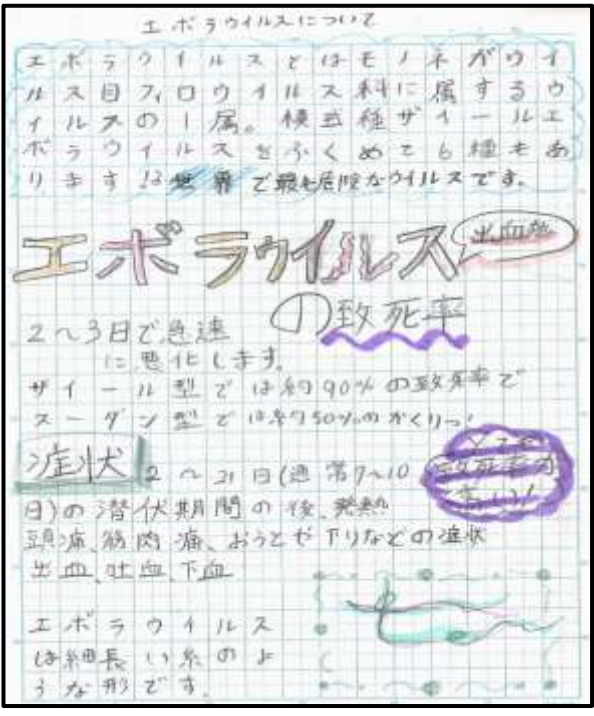 エボラウイルスについて
エボラウイルスとはモノネガウイ
ルス目フィロウイルス科に属するウ
イルスの1属。模式種ザイールエ
ボラウイルスをふくめて6種もあ
ります。は世界で最も危険なウイルスです。
エボラウイルス 出血熱
の致死率
2〜3日で急速
に悪化します。
ザイール型では約90%の致死率で
スーダン型では約50%のかくりつ!
とても
致死率が
高い!
症状 2〜21日(通常7〜10
日)の潜伏期間の後、発熱
頭痛、筋肉痛、おうとや下りなどの症状
出血、吐血、下血
エボラウイルス
は細長い糸のよ
うな形です。